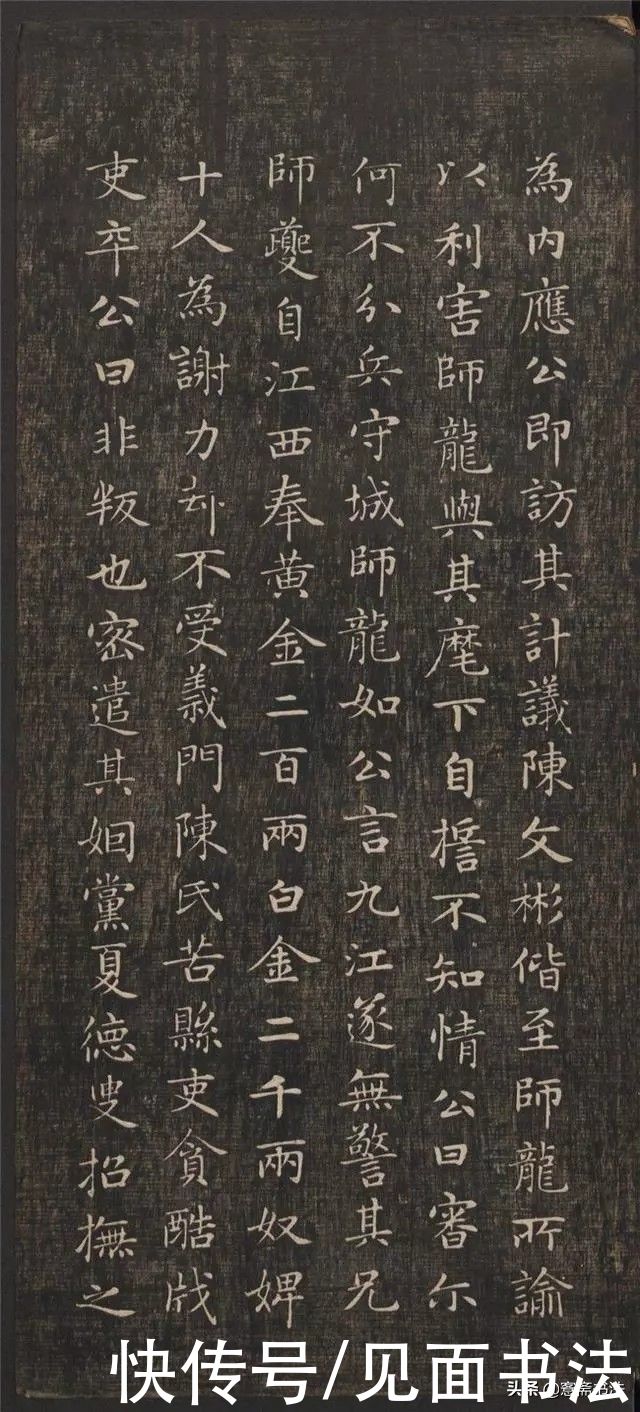 為内應公即訪其計議陳文彬偕至師龍所諭
以利害師龍與其麾下自不知情公曰審尓
何不分兵守城師龍如公言九江遂無警其兄
師夔自江西奉黄金二百兩白金二千兩奴婢
十人為謝力却不受義門陳氏苦縣吏貪酷戕
吏卒公曰非叛也密遣其姻黨夏德叟招撫之
快传号/见面书法